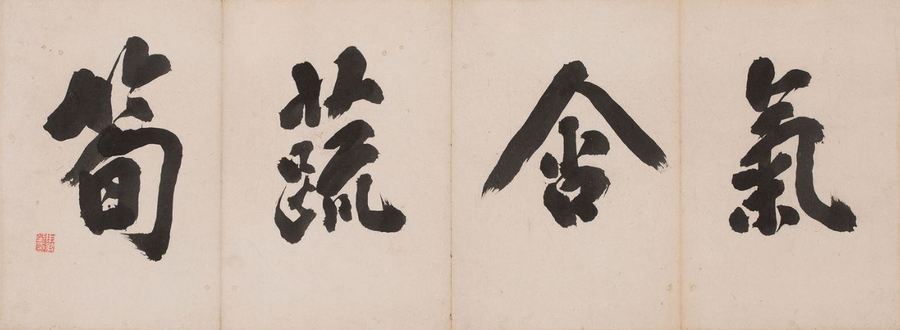 氣含蔬筍